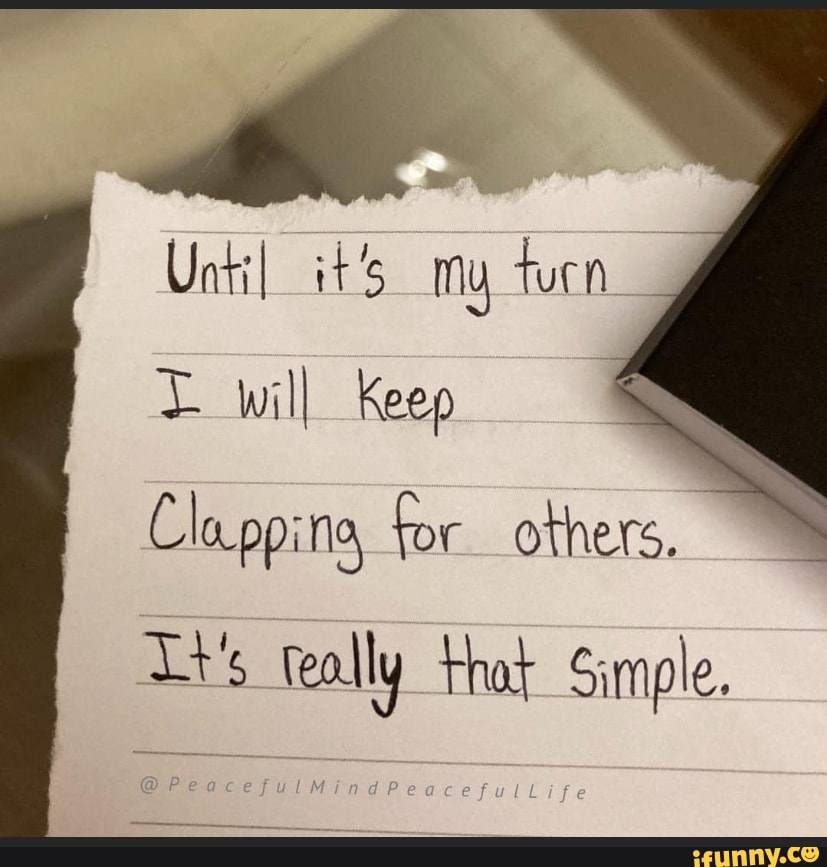 Until it's my turn
I will keep
Clapping for others.
It's really that simple.
@PeacefulMindPeacefulLife
ifunny.co